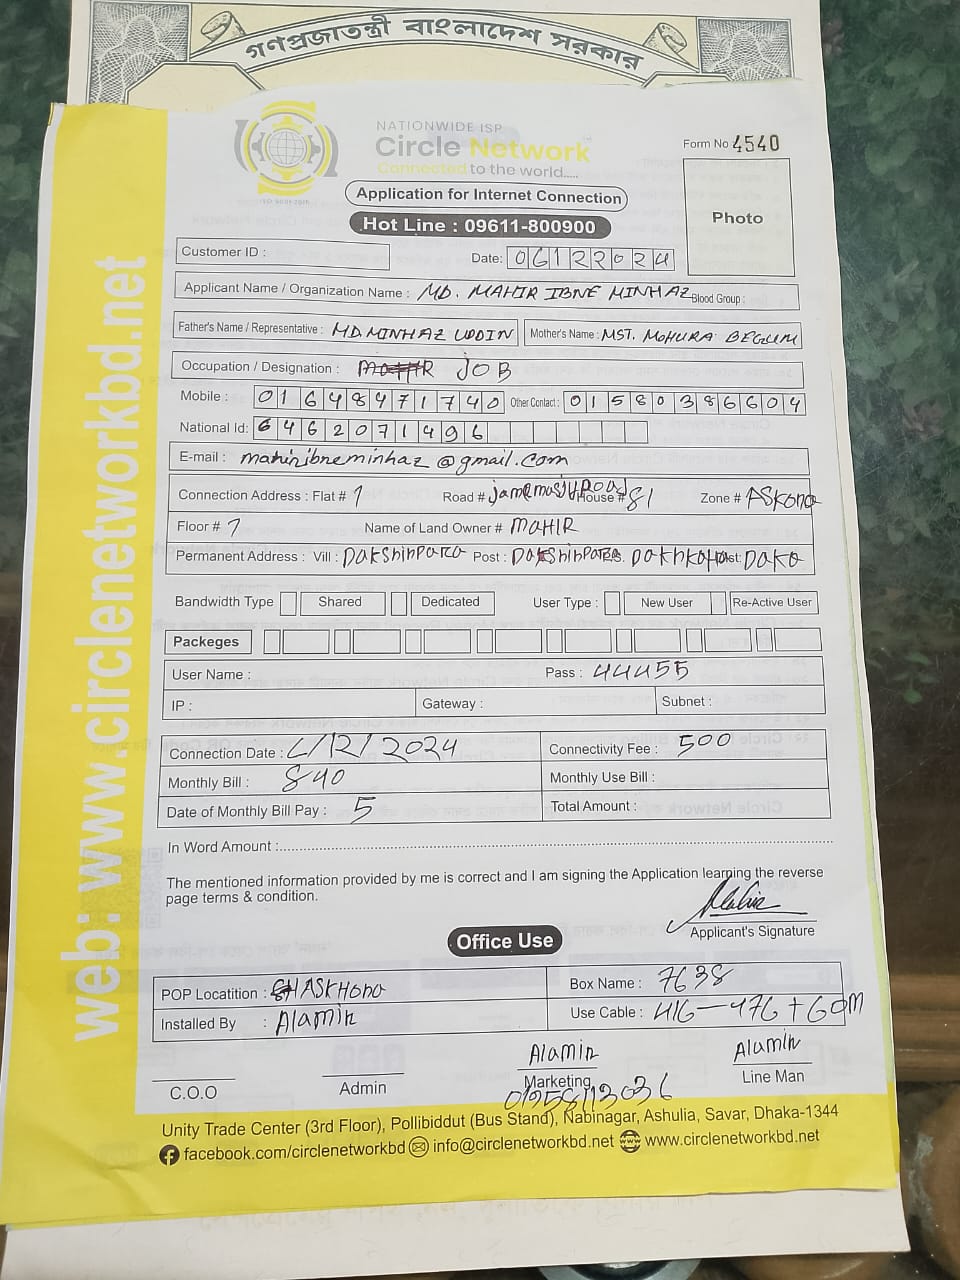 গণপ্রজাতন্ত্রী বাংলাদেশ সরকার
NATIONWIDE ISP
Circle Network
Connected to the world.....
ISO 9001:2015
Form No 4540
Application for Internet Connection
Photo
Hot Line : 09611-800900
Customer ID :
Date: 06122024
Applicant Name / Organization Name : MD. MAHIR IBNE MINHAZ Blood Group :
Father's Name / Representative : MD.MINHAZ UDDIN Mother's Name : MST. MOHURA BEGUM
Occupation / Designation : JOB
Mobile : 01648471740 Other Contact : 01580386604
National Id: 6462071496
E-mail : mahiribneminhaz@gmail.com
Connection Address : Flat # 7 Road # House # 81 Zone # ASKONA
Floor # 7 Name of Land Owner # MAHIR
Permanent Address : Vill : DAKSHINPARA Post : DAKShinPARA Dist: DAKA
Bandwidth Type Shared Dedicated User Type : New User Re-Active User
Packeges
User Name : Pass : 44455
IP : Gateway : Subnet :
Connection Date : 6/12/2024 Connectivity Fee : 500
Monthly Bill : 840 Monthly Use Bill :
Date of Monthly Bill Pay : 5 Total Amount :
In Word Amount :
The mentioned information provided by me is correct and I am signing the Application learning the reverse
page terms & condition.
Mahir
Applicant's Signature
Office Use
POP Locatition : ASKHona Box Name : 7638
Installed By : Alamin Use Cable : 416-476+60M
Alamin Alamin
C.O.O Admin Marketing Line Man
Unity Trade Center (3rd Floor), Pollibiddut (Bus Stand), Nabinagar, Ashulia, Savar, Dhaka-1344
facebook.com/circlenetworkbd info@circlenetworkbd.net www.circlenetworkbd.net
web: www.circlenetworkbd.net